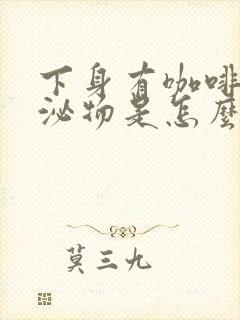 下身有咖啡
泌物是怎麼
莫三九